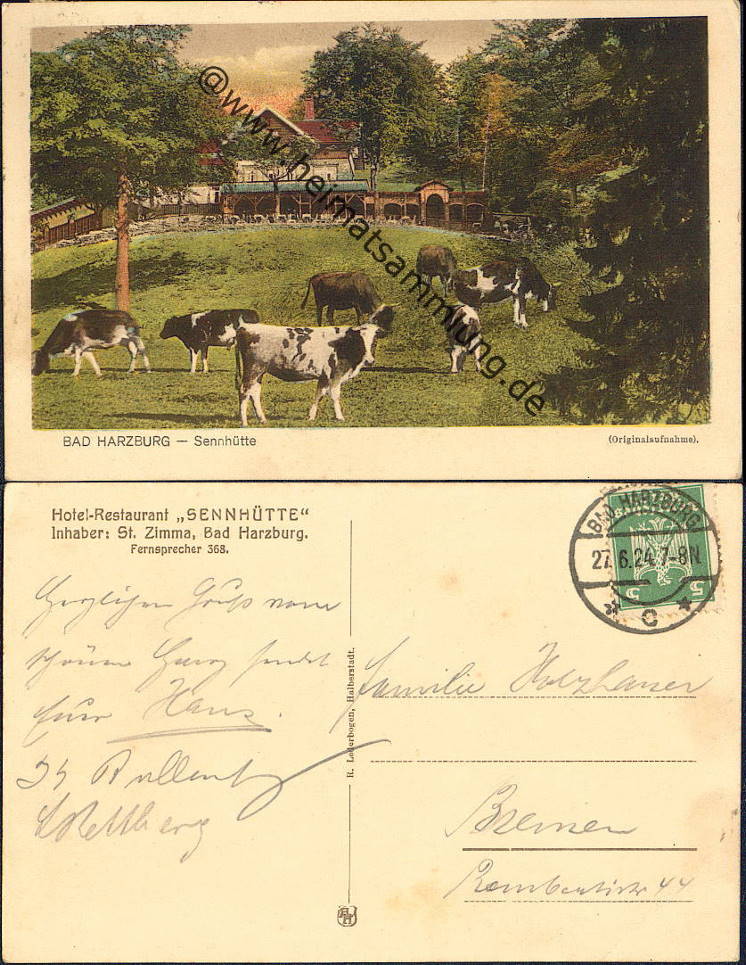 @www.heimatsammlung.de
BAD HARZBURG — Sennhütte
(Originalaufnahme).
Hotel-Restaurant „SENNHÜTTE“
Inhaber: St. Zimma, Bad Harzburg.
Fernsprecher 368.
BAD HARZBURG
27.6.24.7-8N.
* C *
5 5
Herzlichen Gruß vom
schönen Harz sendet
Euer Hans.
R. Lederbogen, Halberstadt.
Familie Holzhauer
Bremen
44